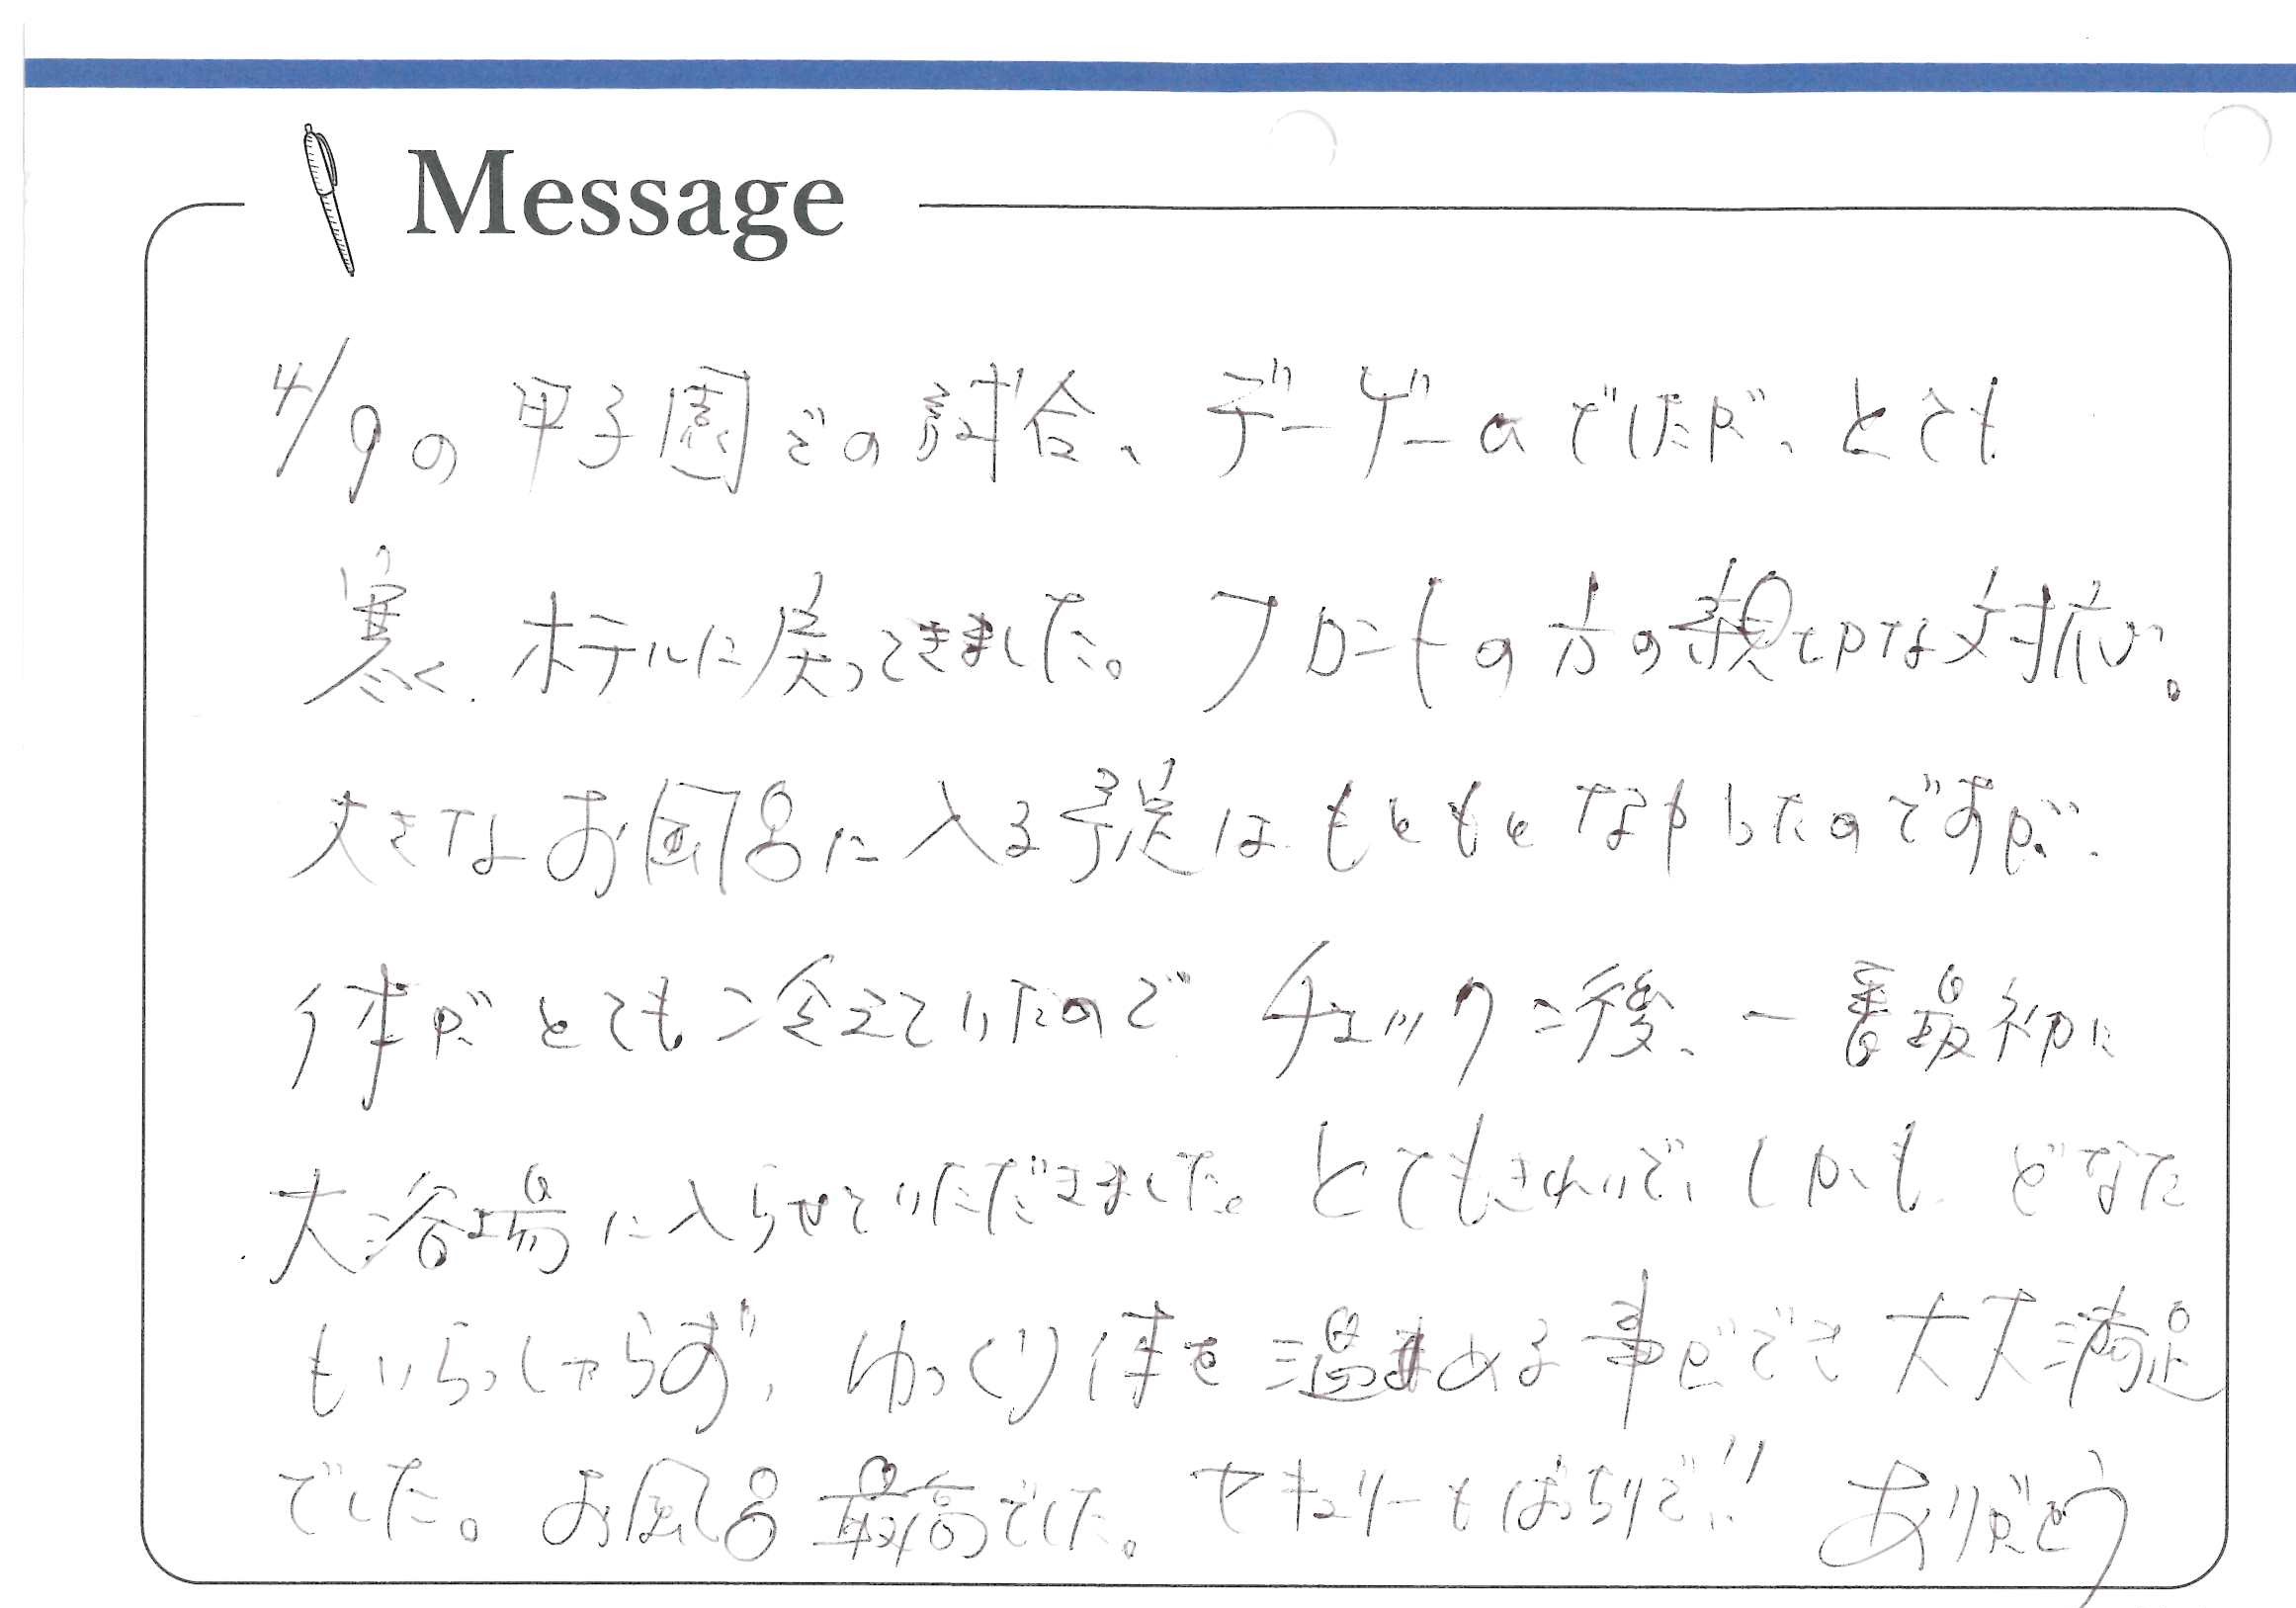 Message
4/9の甲子園での試合、デーゲームでしたが、とても
寒く、ホテルに戻ってきました。フロントの方の親切な対応が。
大きなお風呂に入る予定はもともとなかったのですが、
体がとても冷えていたので チェックイン後、一番最初に
大浴場に入らせていただきました。とてもきれいで、しかも どなた
もいらっしゃらず、ゆっくり体を温める事ができ大大満足
でした。お風呂最高でした。セキュリティーもばっちりで!! ありがとう